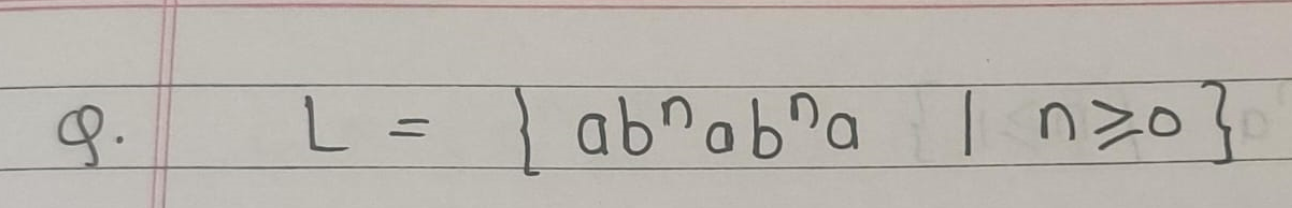 Q. L = { abⁿabⁿa | n ≥ 0 }